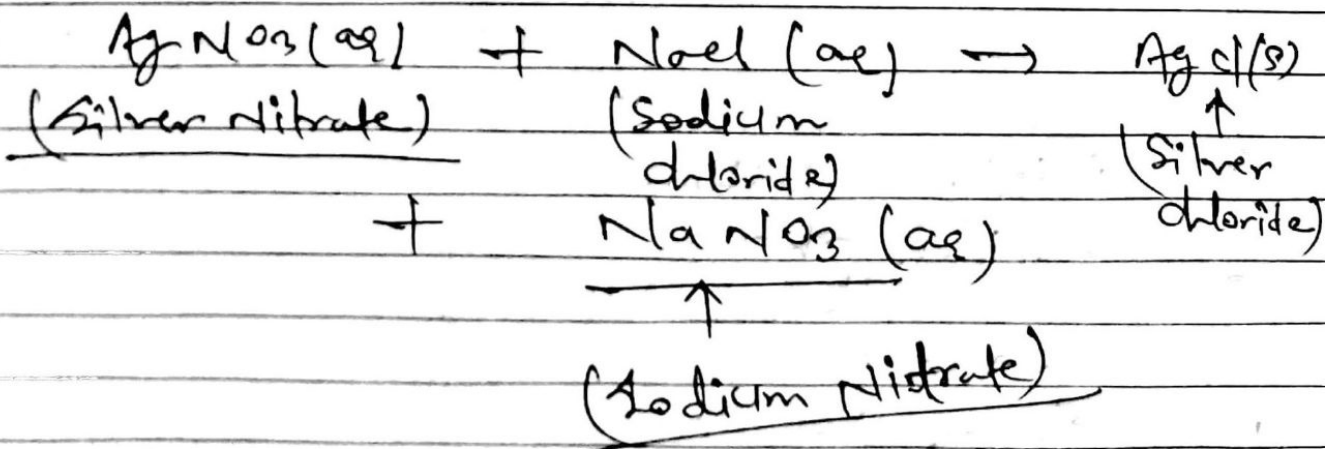 AgNO3(aq) + NaCl (aq) → AgCl(s)
(Silver Nitrate) (Sodium chloride) ↑ (Silver chloride)
+ NaNO3 (aq)
↑
(Sodium Nistrate)